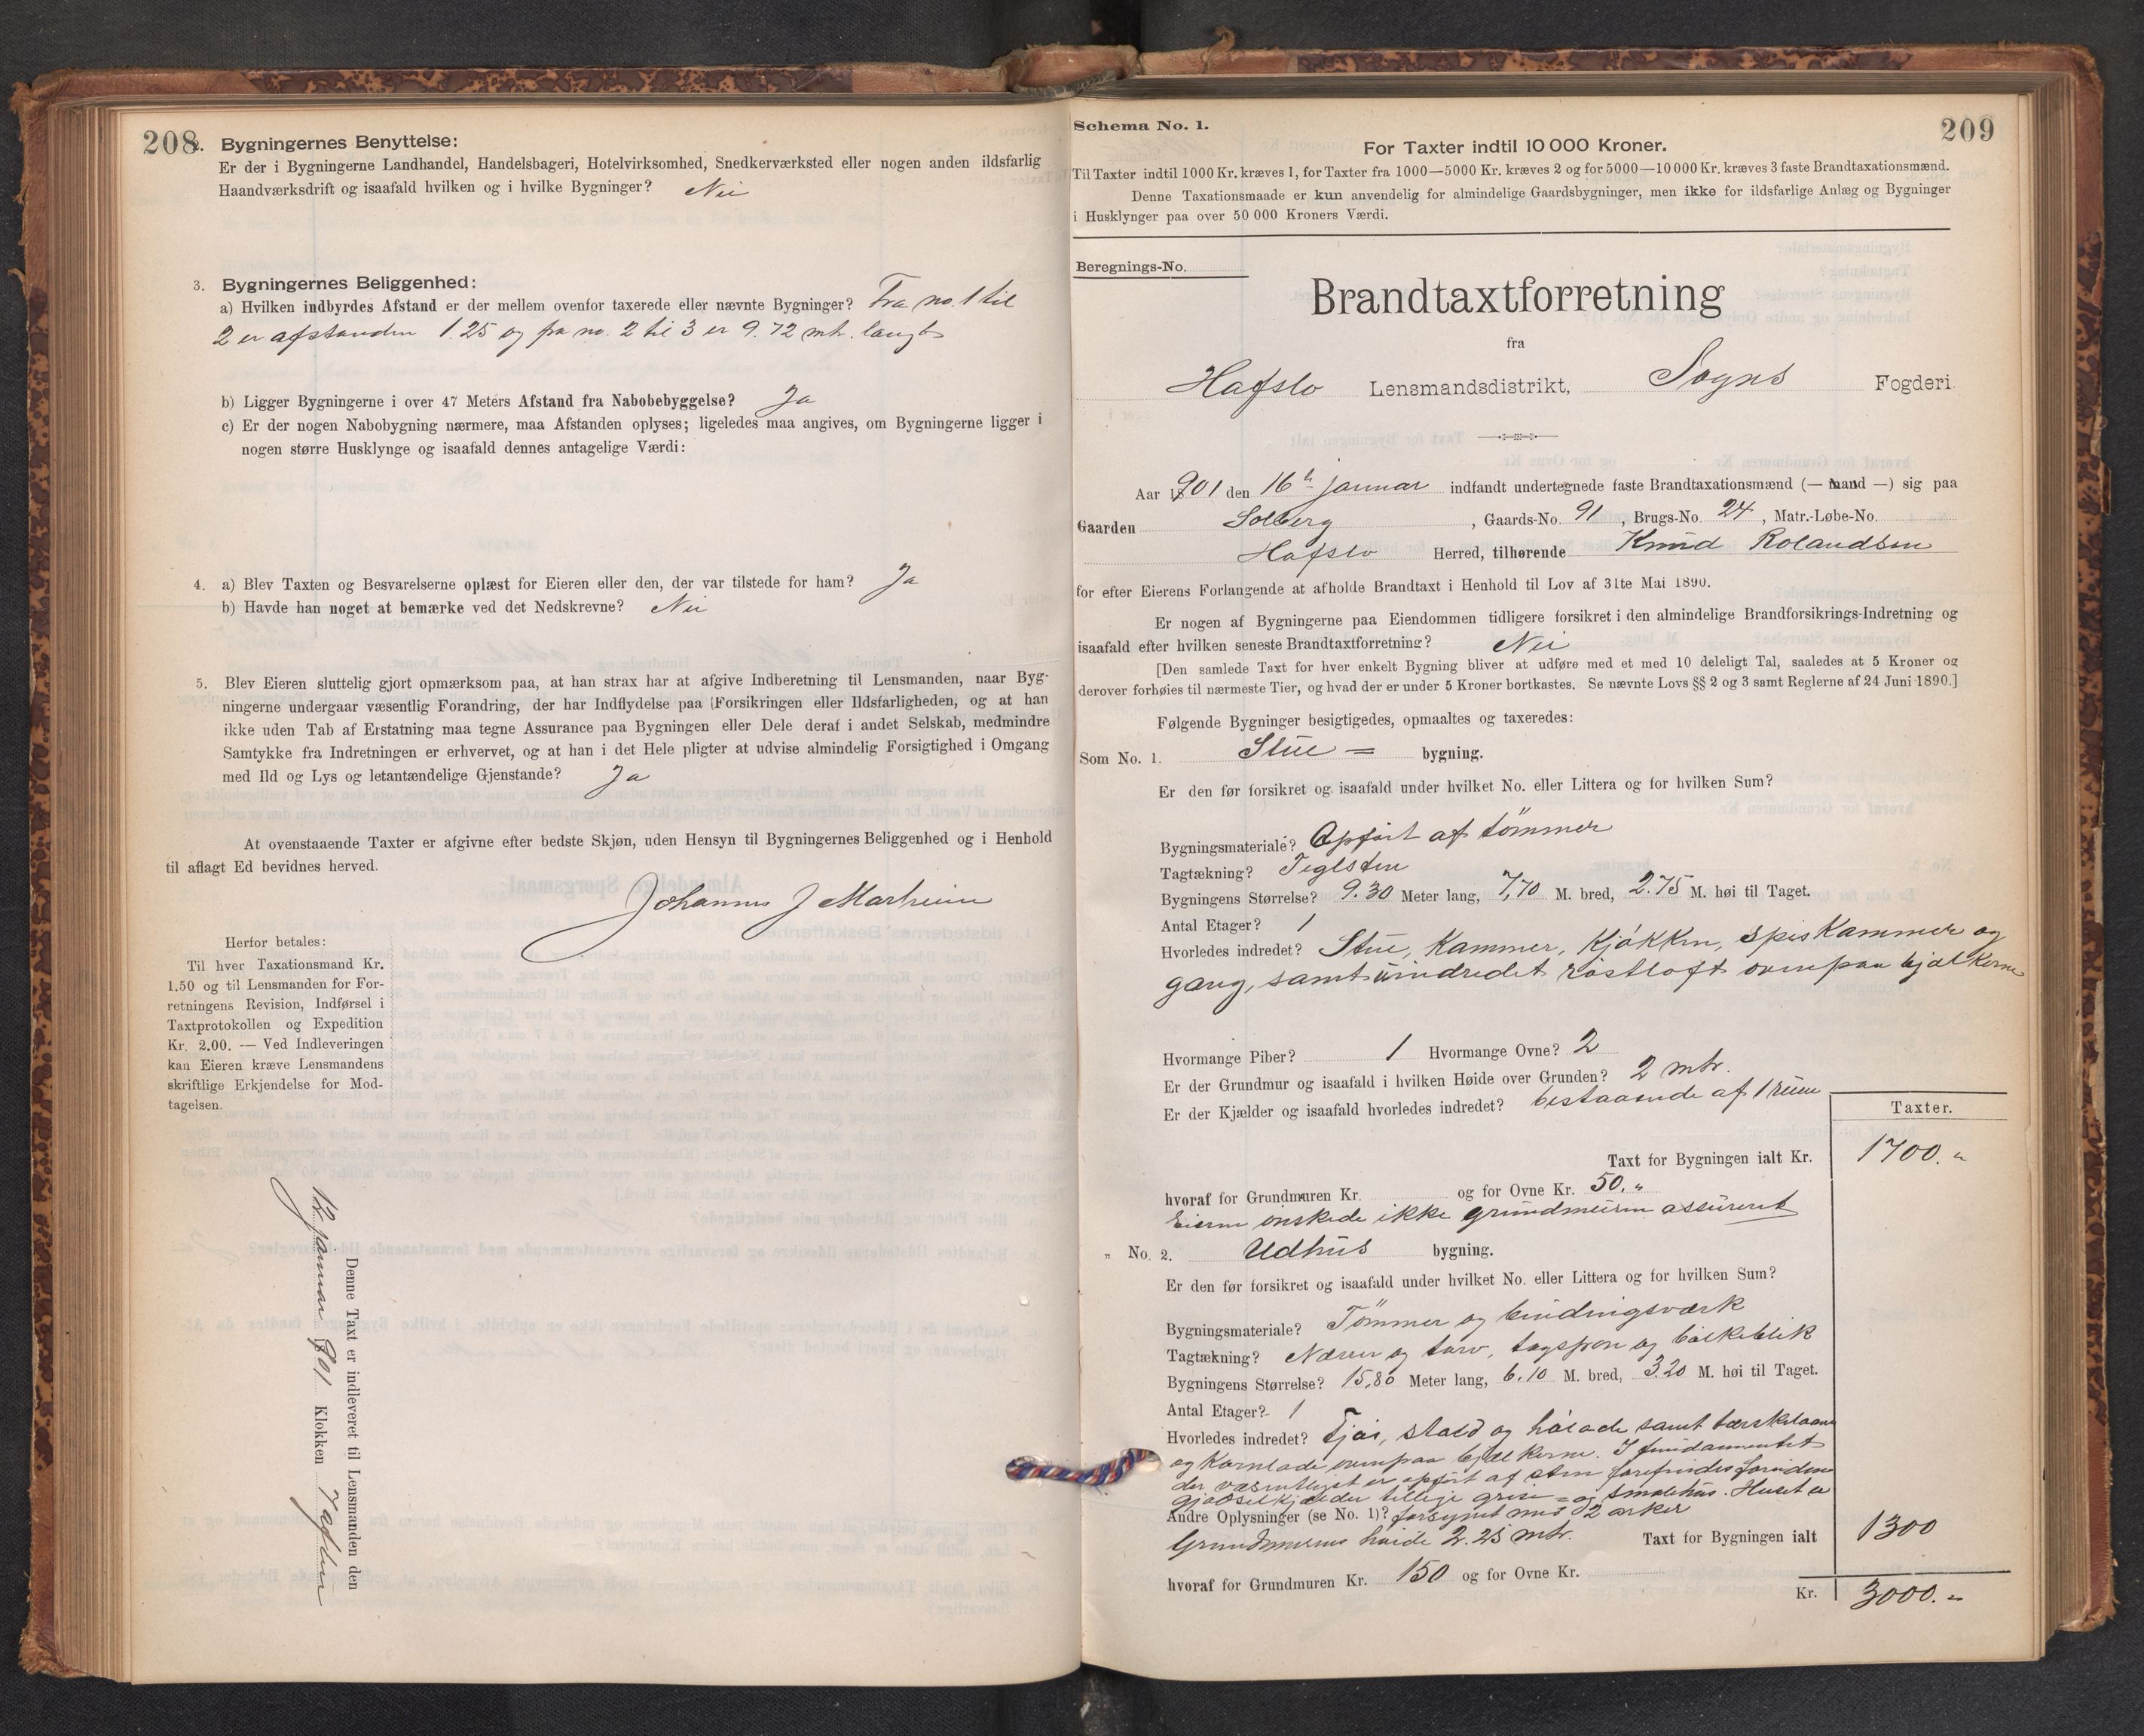 208
2. Bygningernes Benyttelse:
Er der i Bygningerne Landhandel, Handelsbageri, Hotelvirksomhed, Snedkerværksted eller nogen anden ildsfarlig
Haandværksdrift og isaafald hvilken og i hvilke Bygninger? Nei
3. Bygningernes Beliggenhed:
a) Hvilken indbyrdes Afstand er der mellem ovenfor taxerede eller nævnte Bygninger? Fra no. 1 til
2 er afstanden 1.25 og fra no. 2 til 3 er 9.72 mtr. langt
b) Ligger Bygningerne i over 47 Meters Afstand fra Nabobebyggelse? Ja
c) Er der nogen Nabobygning nærmere, maa Afstanden oplyses; ligeledes maa angives, om Bygningerne ligger i
nogen større Husklynge og isaafald dennes antagelige Værdi:
4. a) Blev Taxten og Besvarelserne oplæst for Eieren eller den, der var tilstede for ham? Ja
b) Havde han noget at bemærke ved det Nedskrevne? Nei
5. Blev Eieren sluttelig gjort opmærksom paa, at han strax har at afgive Indberetning til Lensmanden, naar Byg-
ningerne undergaar væsentlig Forandring, der har Indflydelse paa Forsikringen eller Ildsfarligheden, og at han
ikke uden Tab af Erstatning maa tegne Assurance paa Bygningen eller Dele deraf i andet Selskab, medmindre
Samtykke fra Indretningen er erhvervet, og at han i det Hele pligter at udvise almindelig Forsigtighed i Omgang
med Ild og Lys og letantændelige Gjenstande? Ja
At ovenstaaende Taxter er afgivne efter bedste Skjøn, uden Hensyn til Bygningernes Beliggenhed og i Henhold
til aflagt Ed bevidnes herved.
Johannes J Marheim
Herfor betales:
Til hver Taxationsmand Kr.
1.50 og til Lensmanden for For-
retningens Revision, Indførsel i
Taxtprotokollen og Expedition
Kr. 2.00. — Ved Indleveringen
kan Eieren kræve Lensmandens
skriftlige Erkjendelse for Mod-
tagelsen.
Denne Taxt er indleveret til Lensmanden den
12 januar 1901 Klokken 7 aften
209
Schema No. 1.
For Taxter indtil 10 000 Kroner.
Til Taxter indtil 1000 Kr. kræves 1, for Taxter fra 1000—5000 Kr. kræves 2 og for 5000—10 000 Kr. kræves 3 faste Brandtaxationsmænd.
Denne Taxationsmaade er kun anvendelig for almindelige Gaardsbygninger, men ikke for ildsfarlige Anlæg og Bygninger
i Husklynger paa over 50 000 Kroners Værdi.
Beregnings-No.
Brandtaxtforretning
fra
Hafslo Lensmandsdistrikt, Sogns Fogderi.
Aar 1901 den 16de januar indfandt undertegnede faste Brandtaxationsmænd (— mand —) sig paa
Gaarden Solberg, Gaards-No. 91, Brugs-No. 24, Matr.-Løbe-No.
Hafslo Herred, tilhørende Knud Rolandsen
for efter Eierens Forlangende at afholde Brandtaxt i Henhold til Lov af 31te Mai 1890.
Er nogen af Bygningerne paa Eiendommen tidligere forsikret i den almindelige Brandforsikrings-Indretning og
isaafald efter hvilken seneste Brandtaxtforretning? Nei
[Den samlede Taxt for hver enkelt Bygning bliver at udføre med et med 10 deleligt Tal, saaledes at 5 Kroner og
derover forhøies til nærmeste Tier, og hvad der er under 5 Kroner bortkastes. Se nævnte Lovs §§ 2 og 3 samt Reglerne af 24 Juni 1890.]
Følgende Bygninger besigtigedes, opmaaltes og taxeredes:
Som No. 1. Stue = bygning.
Er den før forsikret og isaafald under hvilket No. eller Littera og for hvilken Sum?
Bygningsmateriale? Opført af tömmer
Tagtækning? Teglsten
Bygningens Størrelse? 9.30 Meter lang, 7,70 M. bred, 2.75 M. høi til Taget.
Antal Etager? 1
Hvorledes indredet? Stue, Kammer, Kjøkken, spiskammer og
gang, samt uindredet røstloft ovenpaa bjælkerne
Hvormange Piber? 1 Hvormange Ovne? 2
Er der Grundmur og isaafald i hvilken Høide over Grunden? 2 mtr.
Er der Kjælder og isaafald hvorledes indredet? bestaaende af 1 rum
Taxter.
Taxt for Bygningen ialt Kr. 1700. "
hvoraf for Grundmuren Kr. og for Ovne Kr. 50. "
Eieren ønskede ikke grundmuren assureret
" No. 2. Udhus bygning.
Er den før forsikret og isaafald under hvilket No. eller Littera og for hvilken Sum?
Bygningsmateriale? Tömmer og bindingsværk
Tagtækning? Næver og torv, tagspon og bølkeblik
Bygningens Størrelse? 15,80 Meter lang, 6.10 M. bred, 3.20 M. høi til Taget.
Antal Etager? 1
Hvorledes indredet? Fjøs, stald og hølade samt tærskelaave
og kornlade ovenpaa bjælkerne. I fundamentet
der væsentligst er opført af sten forefindes foruden
gjødselkjælder tillige grise = og smalehus. Huset er
Andre Oplysninger (se No. 1)? forsynet med 2 arker
Grundmurens høide 2.25 mtr. Taxt for Bygningen ialt 1300
hvoraf for Grundmuren Kr. 150 og for Ovne Kr.
Kr. 3000. -